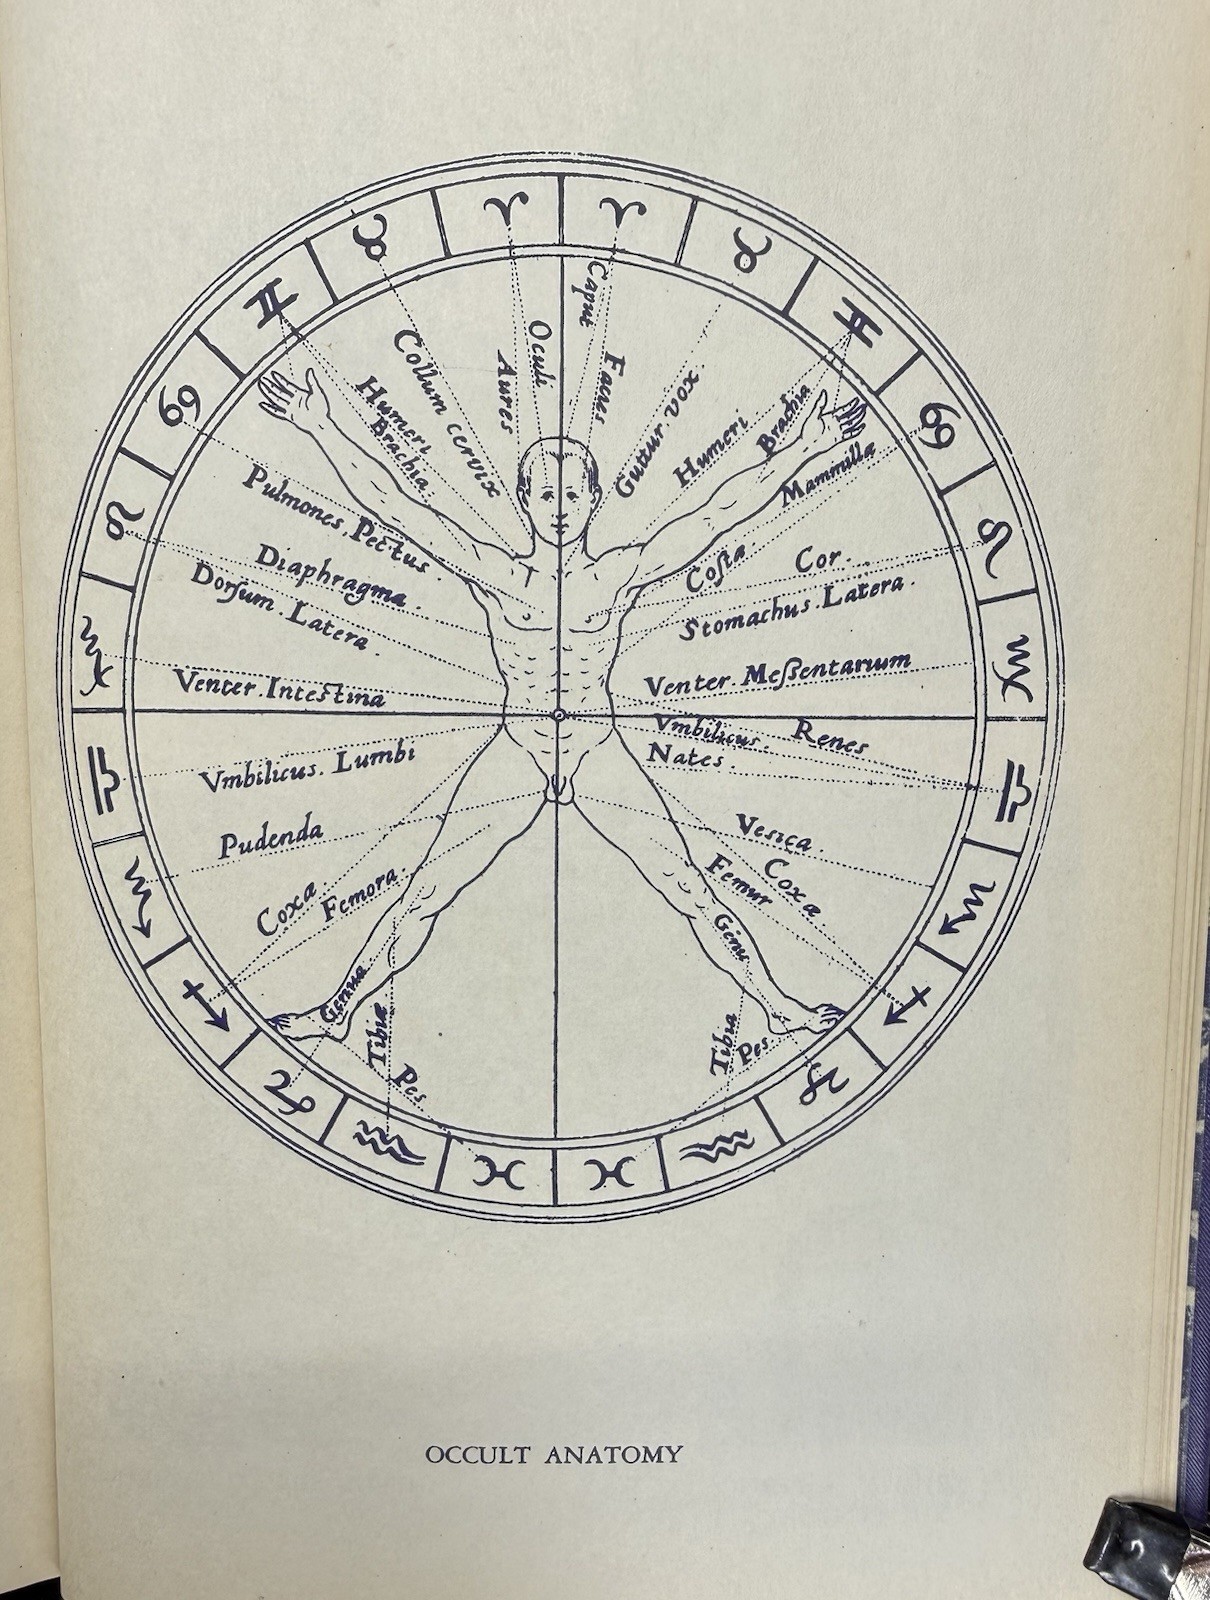 ♈ ♈
♉ ♉
♊ ♊
♋ ♋
♌ ♌
♍ ♍
♎ ♎
♏ ♏
♐ ♐
♑ ♑
♒ ♒
♓ ♓
Humeri
Brachia.
Collum cervix
Aures
Oculi
Pulmones, Pectus.
Diaphragma.
Dorſum. Latera.
Venter. Inteſtina
Vmbilicus. Lumbi
Pudenda
Coxa
Femora.
Genua
Tibiæ
Pes
Caput
Faciis
Guttur. vox.
Humeri
Brachia
Mammilla
Coſta
Cor.
Stomachus. Latera.
Venter. Meſſentarium
Vmbilicus.
Renes
Nates.
Vesica.
Coxa
Femur
Genu
Tibia
Pes
OCCULT ANATOMY